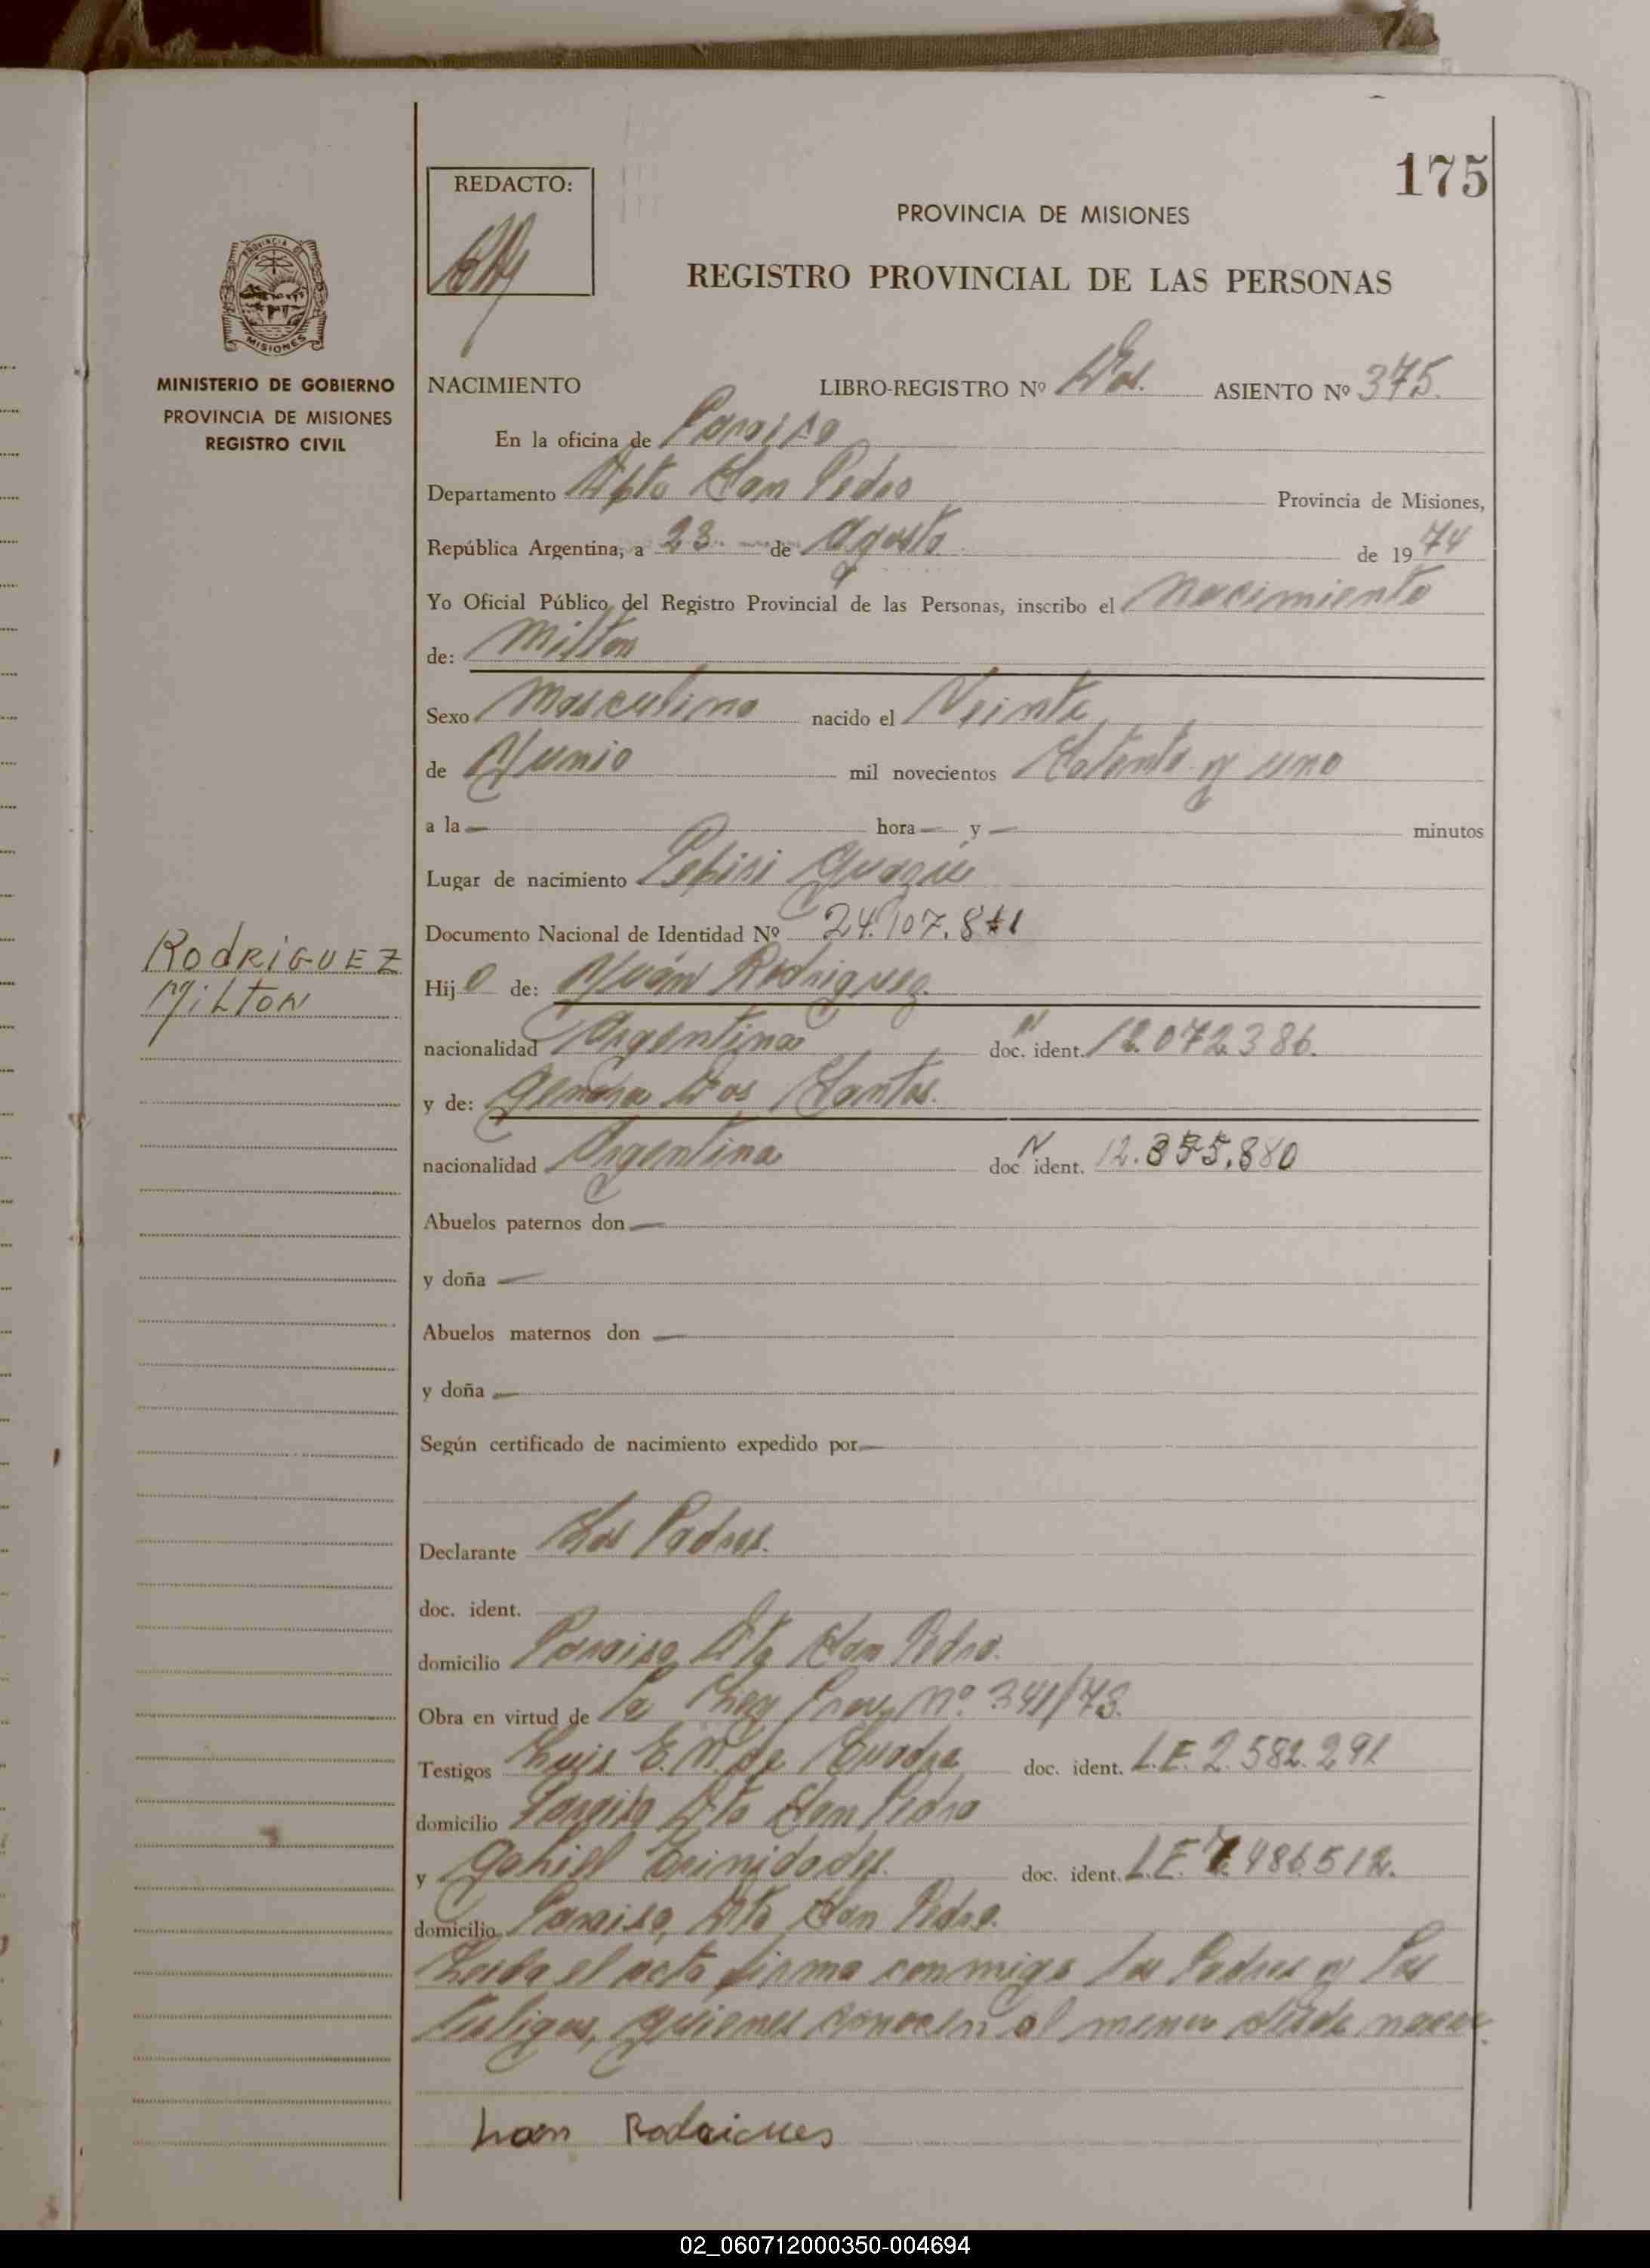 175
REDACTO:
PROVINCIA DE MISIONES
REGISTRO PROVINCIAL DE LAS PERSONAS
PROVINCIA DE
MISIONES
MINISTERIO DE GOBIERNO
PROVINCIA DE MISIONES
REGISTRO CIVIL
NACIMIENTO LIBRO-REGISTRO Nº Dos. ASIENTO Nº 375.
En la oficina de Paraiso
Departamento Dpto San Pedro Provincia de Misiones,
República Argentina, a 23 de Agosto de 1974
Yo Oficial Público del Registro Provincial de las Personas, inscribo el Nacimiento
de: Milton
Sexo Masculino nacido el Veinte
de Junio mil novecientos Setenta y uno
a la — hora — y — minutos
Lugar de nacimiento Pepiri Guazú
Documento Nacional de Identidad Nº 24.107.841
RODRIGUEZ
MILTON
Hijo de: Juán Rodriguez.
nacionalidad Argentina doc. ident. 12.072.386.
y de: Dos Santos.
nacionalidad Argentina doc ident. 12.355.880
Abuelos paternos don —
y doña —
Abuelos maternos don —
y doña —
Según certificado de nacimiento expedido por —
Declarante Los Padres.
doc. ident.
domicilio Paraiso, Dto San Pedro.
Obra en virtud de la Ley Prov. Nº 341/73.
Testigos Luis E. N. de doc. ident. L.E. 2.582.291
domicilio Paraiso Dto San Pedro
y Gabriel Trinidades. doc. ident. L.E. 7.486512.
domicilio Paraiso, Dto San Pedro.
Leida el acta firma conmigo los Padres y los
testigos, quienes conocen al menor desde nacer.
Juan Rodrigues
02_060712000350-004694